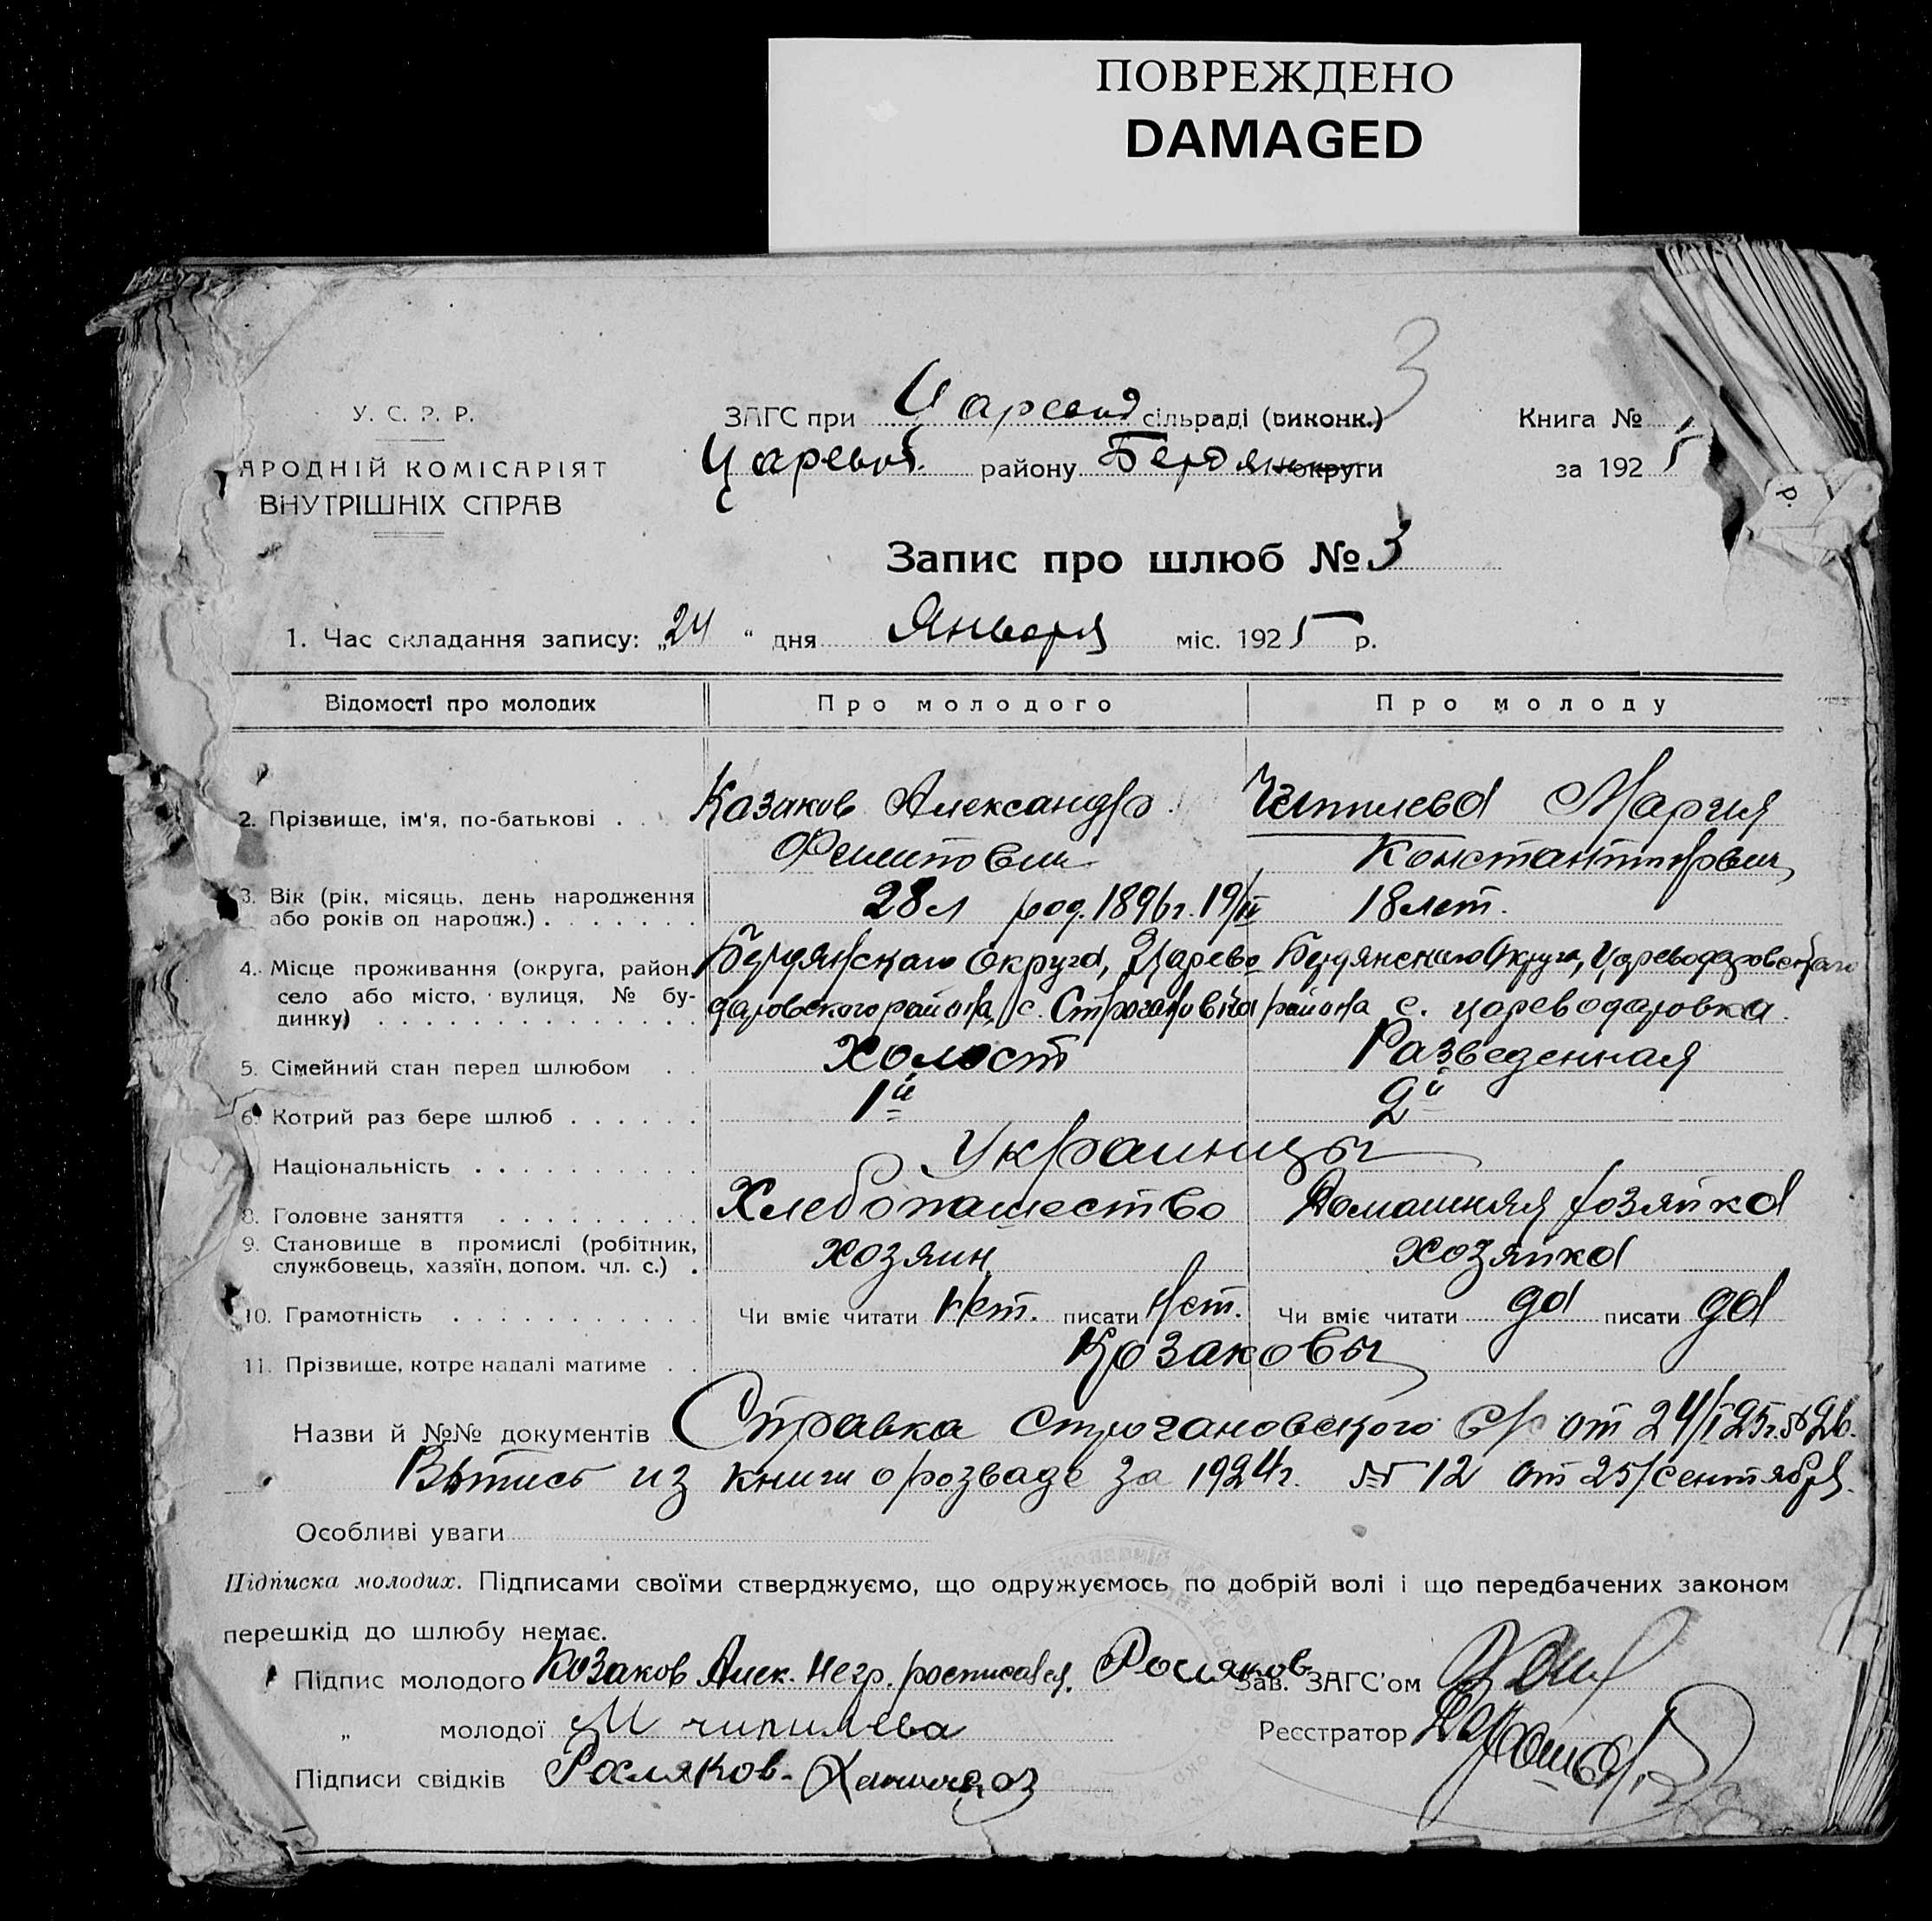 ПОВРЕЖДЕНО
DAMAGED
3
У. С. Р. Р.
АРОДНІЙ КОМІСАРІЯТ
ВНУТРІШНІХ СПРАВ
ЗАГС при сільраді (виконк.)
Царевод. району Бердян округи
Книга № 1
за 1925
р.
Запис про шлюб № 3
1. Час складання запису: „24“ дня Января міс. 1925 р.
Відомості про молодих Про молодого Про молоду
2. Прізвище, ім'я, по-батькові . . Казаков Александр Чипилева Мария
Константиновна
3. Вік (рік, місяць, день народження
або років од народж.) . . . . . . . 28 л род. 1896 г. 19/II 18 лет.
4. Місце проживання (округа, район, Бердянского Округа, Царево Бердянского Округа, Цареводаровского
село або місто, вулиця, № бу- даровского района, с. Строгановка района с. цареводаровка.
динку) . . . . . . . . . . . . . .
5. Сімейний стан перед шлюбом . . Холост Разведенная
6. Котрий раз бере шлюб . . . . . . 1й 2й
Національність . . . . . . . . . . Украинцы
8. Головне заняття . . . . . . . . . Хлебопашество Домашняя хозяйка
9. Становище в промислі (робітник,
службовець, хазяїн, допом. чл. с.) . Хозяин Хозяйка
10. Грамотність . . . . . . . . . . . Чи вміє читати нет. писати нет. Чи вміє читати да писати да
11. Прізвище, котре надалі матиме . . Козаковы
Назви й №№ документів Справка Строгановского С/с от 24/I 25 г. № 26.
Выпись из книги о розводе за 1924 г. № 12 от 25/сентября.
Особливі уваги
Підписка молодих. Підписами своїми стверджуємо, що одружуємось по добрій волі і що передбачених законом
перешкід до шлюбу немає.
Підпис молодого Козаков Алек. Негр. росписался. Росляков Зав. ЗАГС'ом
„ молодої М чипилева Реєстратор
Підписи свідків Росляков.